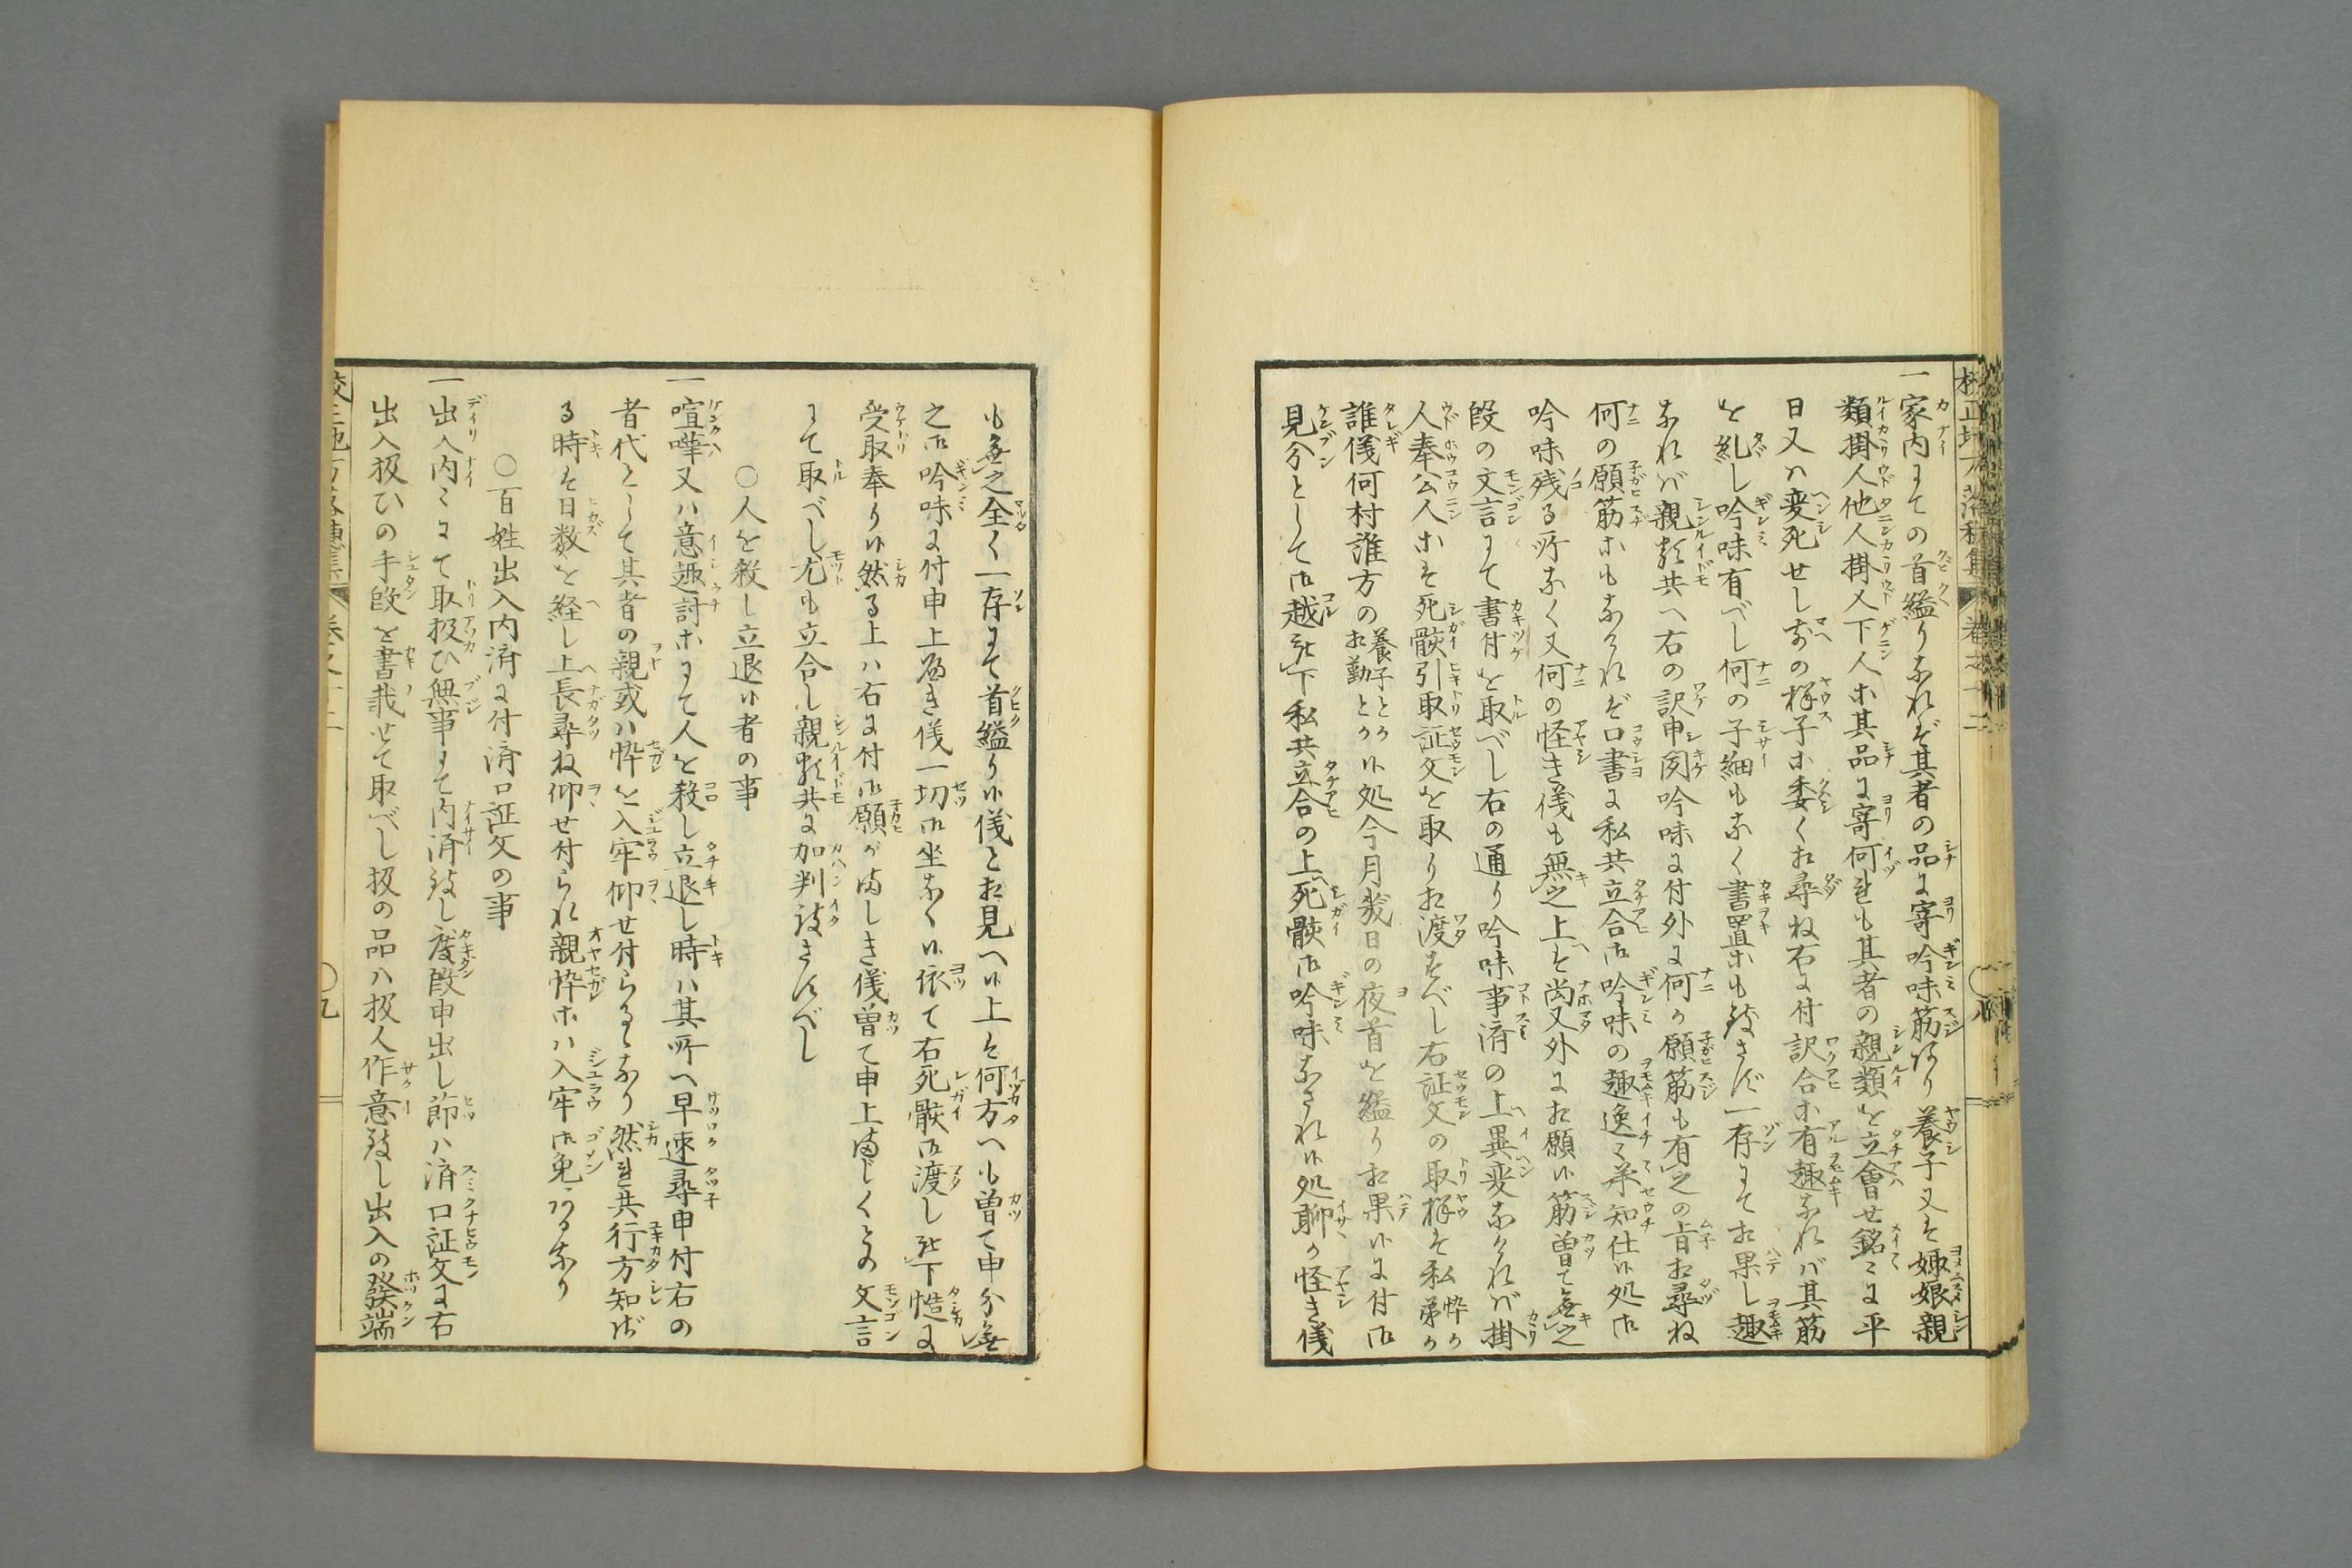 一家内にての首縊りなれバ其者の品に寄吟味筋あり養子又ハ娵娘親
類掛人他人掛又下人ホ其品に寄何れも其者の親類を立會せ銘〻に平
日又ハ変死せし前の様子ホ委く相尋ね右に付訳合ホ有趣なれバ其筋
を糺し吟味有べし何の子細もなく書置ホも致さず一存にて相果し趣
なれバ親類共へ右の訳申聞吟味に付外に何ぞ願筋も有之の旨相尋ね
何の願筋ホもなければ口書に私共立合御吟味の趣逸〻承知仕候処御
吟味残る所なく又何の怪き儀も無之上ハ尚又外に相願候筋曽て無之
段の文言にて書付を取べし右の通り吟味事済の上異変なければ掛
人奉公人ホハ死骸引取証文を取り相渡すべし右証文の取様ハ私忰か弟か
誰儀何村誰方の養子とか相勤とか候処今月幾日の夜首を縊り相果候に付御
見分として御越被下私共立合の上死骸御吟味なされ候処聊か怪き儀
も無之全く一存にて首縊り候儀と相見へ候上ハ何方へも曽て申分無
之御吟味に付申上べき儀一切御坐なく候依て右死骸御渡し被下慥に
受取奉り候然る上ハ右に付御願ヶ間しき儀曽て申上間じくとの文言
にて取べし尤も立合し親類共に加判致さすべし
○人を殺し立退候者の事
一喧嘩又ハ意趣討ホにて人を殺し立退し時ハ其所へ早速尋申付右の
者代として其者の親或ハ忰を入牢仰せ付らるゝなり然れ共行方知ざ
る時ハ日数を経し上長尋ね仰せ付られ親忰ホハ入牢御免あるなり
○百姓出入内済に付済口証文の事
一出入内〻にて取扱ひ無事にて内済致し度段申出し節ハ済口証文に右
出入扱ひの手段を書載せて取べし扱の品ハ扱人作意致し出入の發端